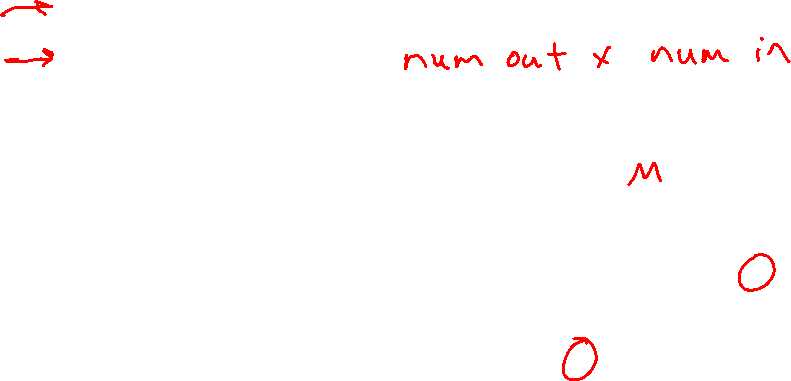 num out x num in
M
O
O